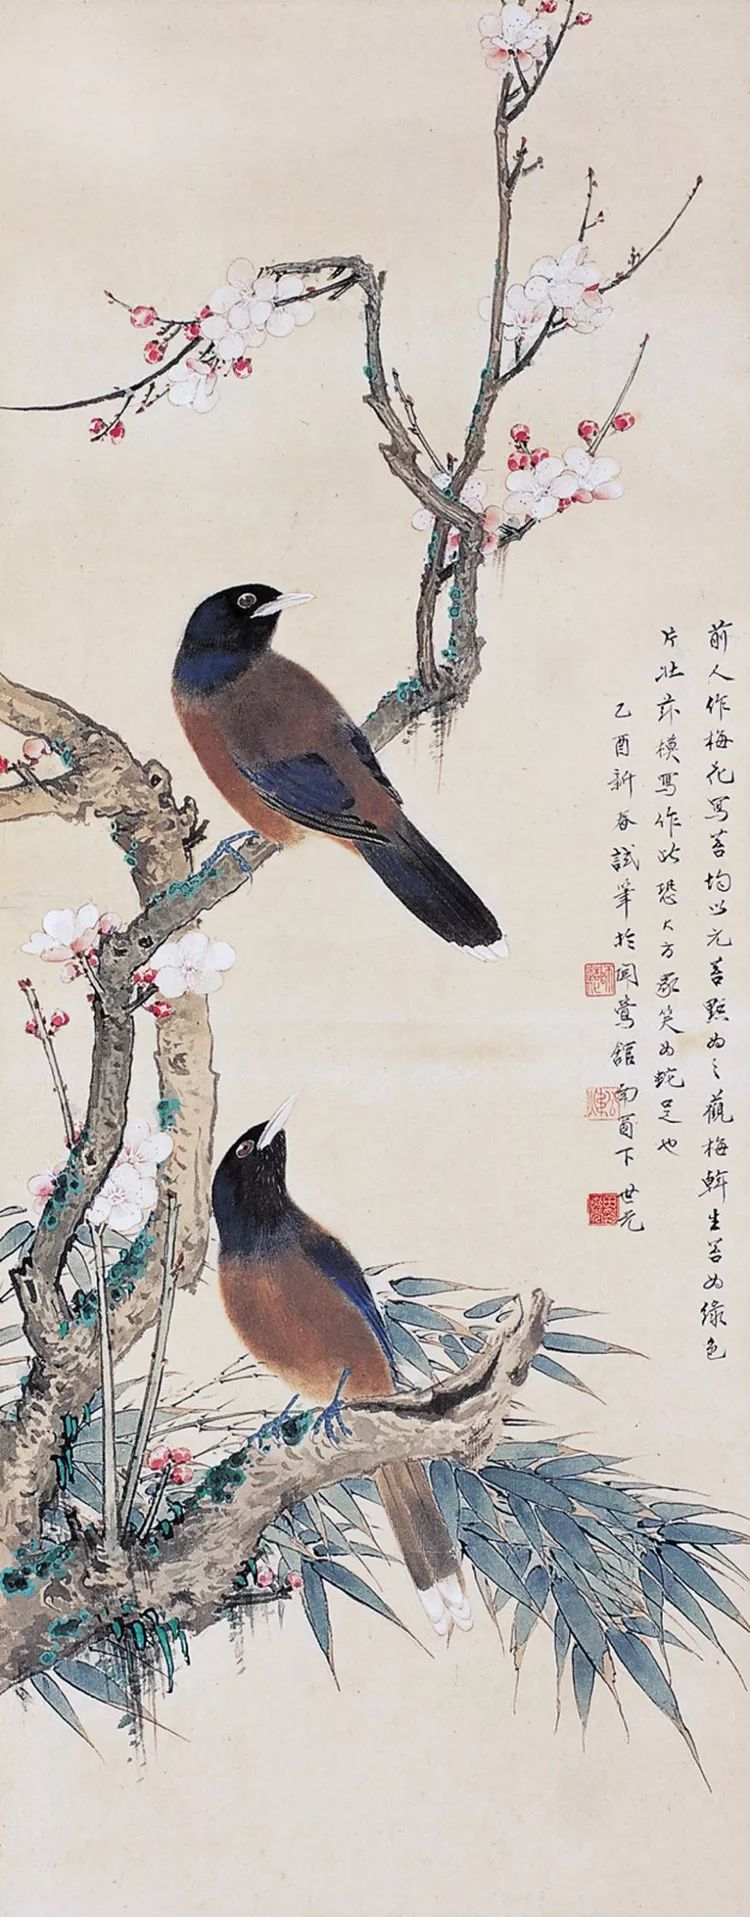 前人作梅花寫苔均以元苔點为之觀梅榦生苔为綠色
片壯茲模寫作此恐大方家笑为蛇足也
乙酉新春試筆於聞鶯館南窗下 世光